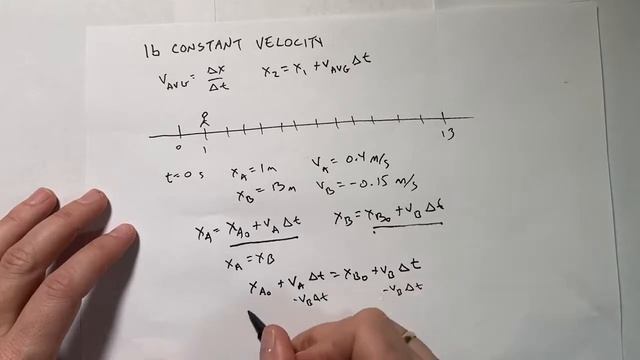 1b CONSTANT VELOCITY
V_AVG = Δx/Δt   x₂ = x₁ + V_AVG Δt
0 1 13
t=0 s   x_A = 1m   V_A = 0.4 m/s
x_B = 13m   V_B = -0.15 m/s
x_A = x_A₀ + V_A Δt   x_B = x_B₀ + V_B Δt
x_A = x_B
x_A₀ + V_A Δt = x_B₀ + V_B Δt
-V_B Δt   -V_B Δt